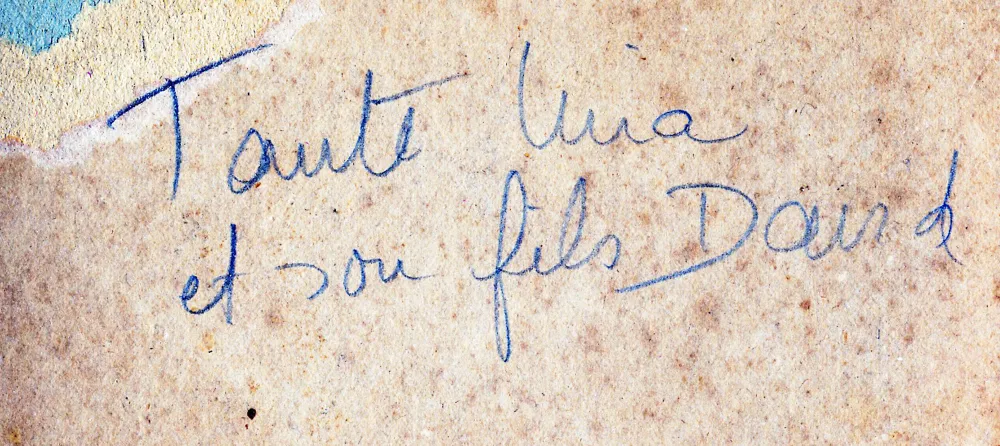 Tante
et son fils David